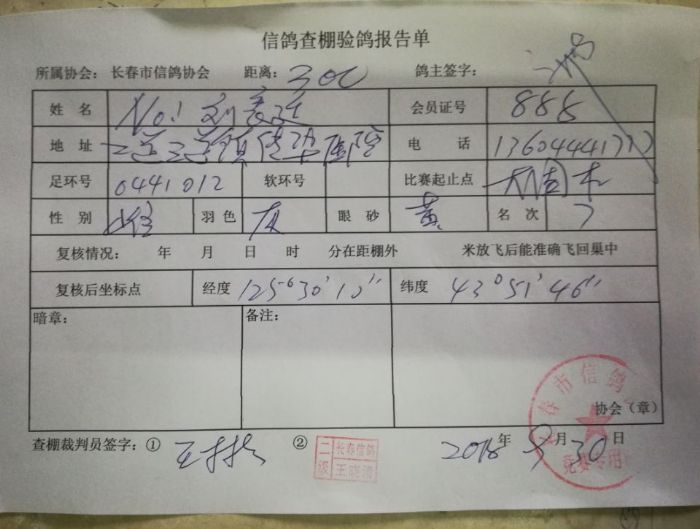 信鸽查棚验鸽报告单
所属协会: 长春市信鸽协会 距离: 300 鸽主签字:
姓 名 No! 刘 会员证号 888
地 址 二道三道镇 电 话
足环号 0441012 软环号 比赛起止点
性 别 雄 羽 色 灰 眼 砂 黄 名 次 7
复核情况: 年 月 日 时 分在距棚外 米放飞后能准确飞回巢中
复核后坐标点 经度 125°30′10″ 纬度 43°51′46″
暗章: 备注:
协会（章）
春市信鸽
竞赛专用
查棚裁判员签字: ① ② 二级 长春信鸽 2018年 9月30日